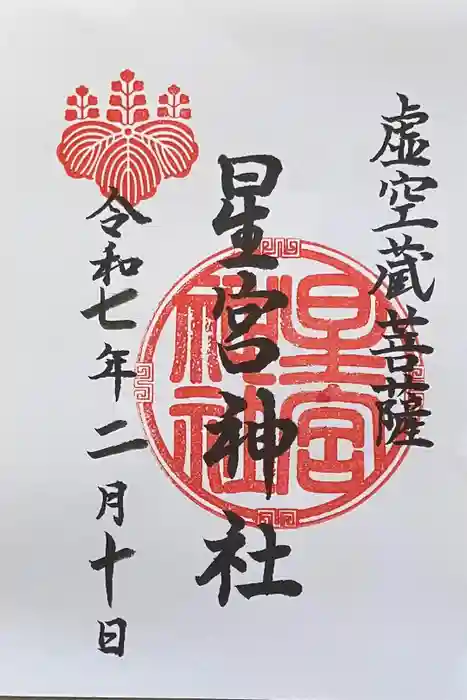 虚空蔵菩薩
星宮神社
星宮神社
令和七年二月十日